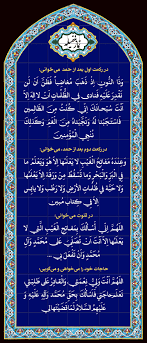 در رکعت اول بعد از حمد می‌خوانی:
وَذَا النُّونِ إِذ ذَهَبَ مُغَاضِبًا فَظَنَّ أَنْ لَنْ
نَقْدِرَ عَلَيْهِ فَنَادَى فِي الظُّلُمَاتِ أَنْ لَا إِلَهَ إِلَّا
أَنْتَ سُبْحَانَكَ إِنِّي كُنْتُ مِنَ الظَّالِمِينَ
فَاسْتَجَبْنَا لَهُ وَنَجَّيْنَاهُ مِنَ الْغَمِّ وَكَذَلِكَ
نُنْجِي الْمُؤْمِنِينَ
در رکعت دوم بعد از حمد می‌خوانی:
وَعِنْدَهُ مَفَاتِحُ الْغَيْبِ لَا يَعْلَمُهَا إِلَّا هُوَ وَيَعْلَمُ مَا
فِي الْبَرِّ وَالْبَحْرِ وَمَا تَسْقُطُ مِنْ وَرَقَةٍ إِلَّا يَعْلَمُهَا
وَلَا حَبَّةٍ فِي ظُلُمَاتِ الْأَرْضِ وَلَا رَطْبٍ وَلَا يَابِسٍ
إِلَّا فِي كِتَابٍ مُبِينٍ
در قنوت می‌خوانی:
اللَّهُمَّ إِنِّي أَسْأَلُكَ بِمَفَاتِحِ الْغَيْبِ الَّتِي لَا
يَعْلَمُهَا إِلَّا أَنْتَ أَنْ تُصَلِّيَ عَلَى مُحَمَّدٍ وَآلِ
مُحَمَّدٍ وَأَنْ تَفْعَلَ بِي ...
حاجات خود را می‌خواهی و می‌گویی:
اللَّهُمَّ أَنْتَ وَلِيُّ نِعْمَتِي وَالْقَادِرُ عَلَى طَلِبَتِي
تَعْلَمُ حَاجَتِي فَأَسْأَلُكَ بِحَقِّ مُحَمَّدٍ وَآلِهِ عَلَيْهِ وَ
عَلَيْهِمُ السَّلَامُ لَمَّا قَضَيْتَهَا لِي